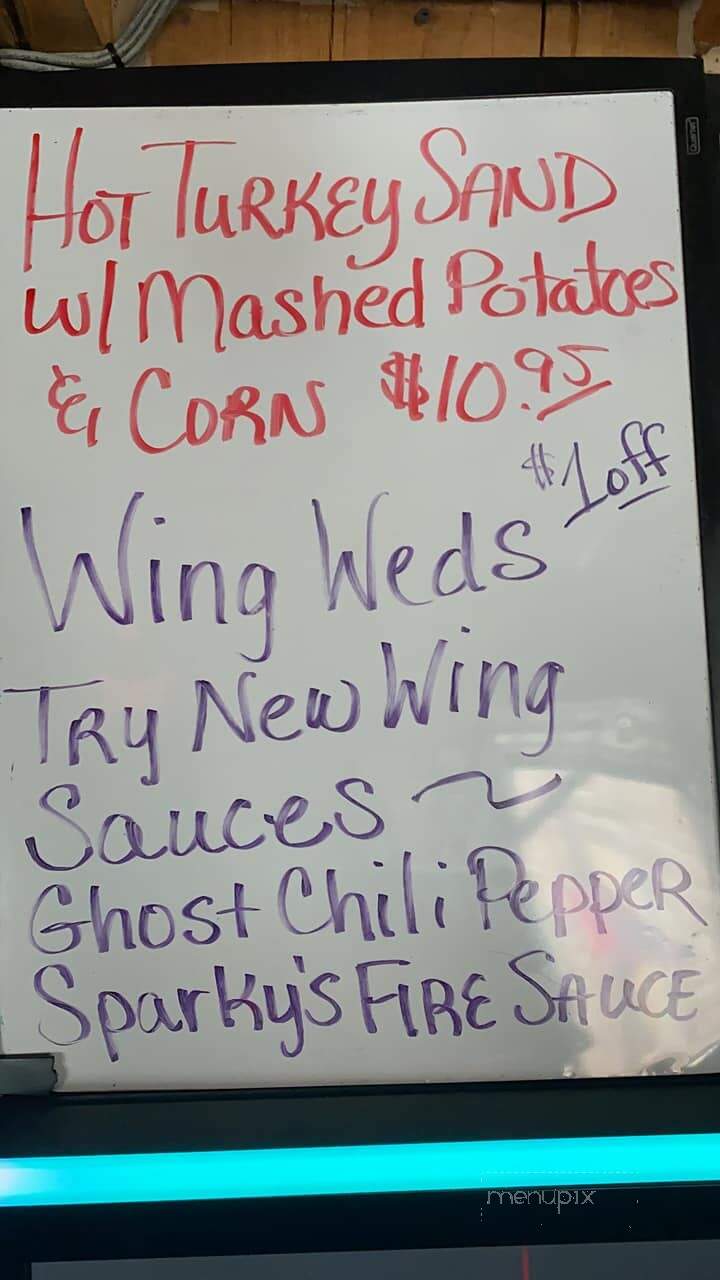 HOT TURKEY SAND
w/ Mashed Potatoes
& CORN $10.95
$1 off
Wing Weds
TRY New Wing
Sauces ~
Ghost Chili PeppeR
Sparky's FIRE SAUCE
menupix